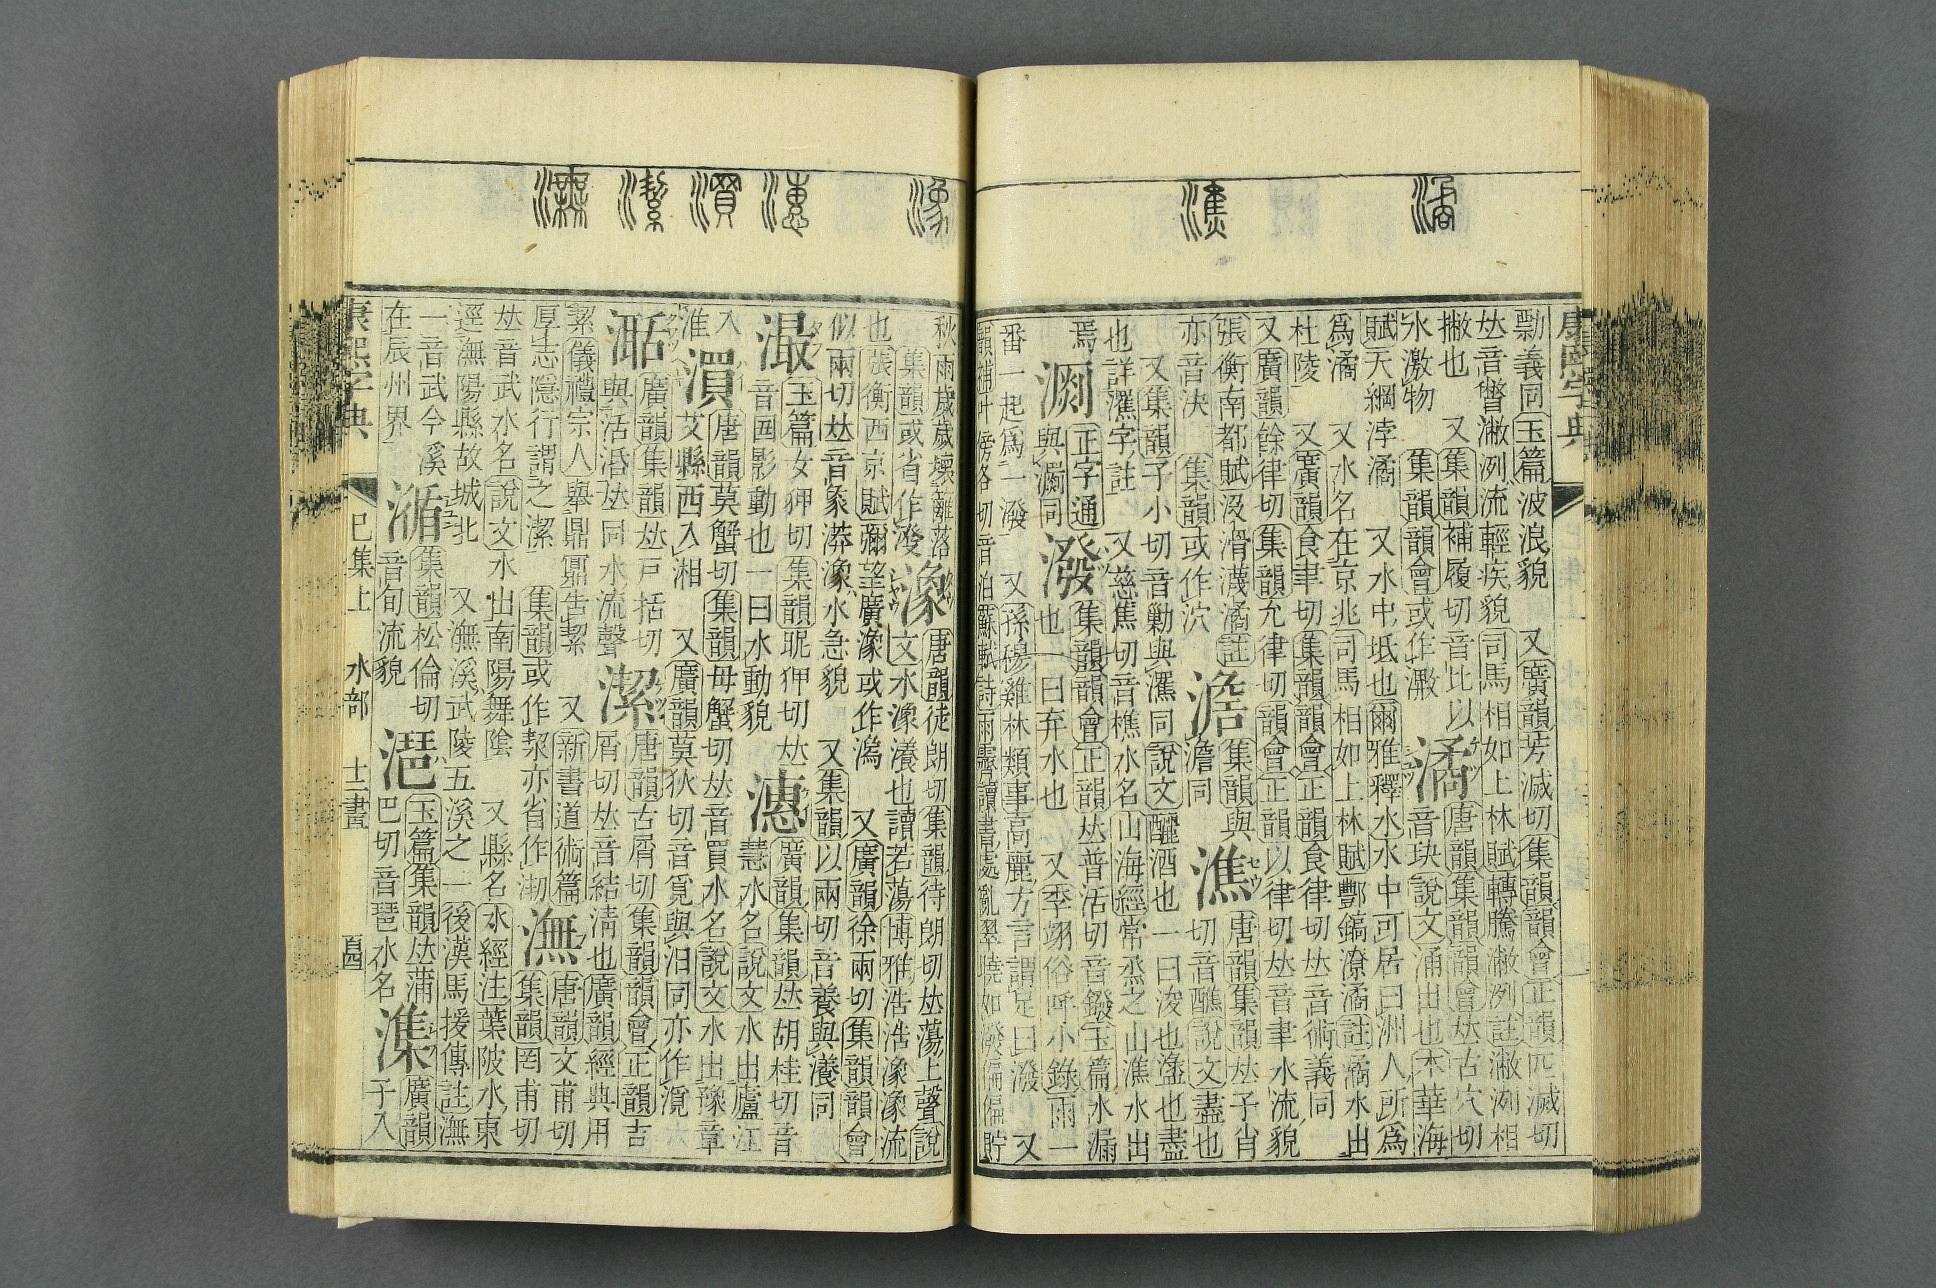 康熙字典
勡義同玉篇波浪貌　又廣韻芳滅切集韻韻會正韻匹滅切
𠀤音瞥潎洌流輕疾貌司馬相如上林賦轉騰潎洌註潎洌相
撇也　又集韻補履切音比以潏唐韻集韻韻會𠀤古穴切
水激物　集韻韻會或作　音玦說文涌出也木華海
賦天綱浡潏　又水中坻也爾雅釋水水中可居曰洲人所爲
爲潏　又水名在京兆司馬相如上林賦酆鎬潦潏註潏水出
杜陵　又廣韻食聿切集韻韻會正韻食律切𠀤音術義同
又廣韻餘律切集韻允律切韻會正韻以律切𠀤音聿水流貌
張衡南都賦沒滑瀎潏註　集韻與潐唐韻集韻𠀤子肖
亦音決　集韻或作泬　澹同　切音醮說文盡也
又集韻子小切音勦與同說文釃酒也一曰浚也盝也盡
也詳字註　又慈焦切音樵水名山海經常烝之山潐水出
焉　正字通潑集韻韻會正韻𠀤普活切音鏺玉篇水漏
與同　也一曰弃水也　又季翊俗呼小錄雨一
番一起爲一潑　又孫穆雞林類事高麗方言謂足曰潑　又
韻補叶滂佫切音泊蘇軾詩雨霽讀書處亂翠曉如潑偏偏貯
秋雨歲歲壞籬落潒唐韻徒朗切集韻待朗切𠀤蕩上聲說
集韻或省作溌　文水潒瀁也讀若蕩博雅浩浩潒潒流
也張衡西京賦彌望廣潒或作　又廣韻徐兩切集韻韻會
似兩切𠀤音象漭潒水急貌　又集韻以兩切音養與瀁同
㵊玉篇女狎切集韻昵狎切𠀤潓廣韻集韻𠀤胡桂切音
音図影動也一曰水動貌　慧水名說文水出廬江
入㵋唐韻莫蟹切集韻母蟹切𠀤音買水名說文水出豫章
淮　艾縣西入湘　又廣韻莫狄切音覓與汨同亦作
廣韻集韻𠀤戸括切潔唐韻古屑切集韻韻會正韻吉
與活湉𠀤同水流聲　屑切𠀤音結淸也廣韻經典用
絜儀禮宗人舉鼎鼏告絜　又新書道術篇潕唐韻文甫切
厚志隱行謂之潔　集韻或作亦省作　集韻罔甫切
𠀤音武水名說文水出南陽舞陰　又縣名水經注葉陂水東
逕潕陽縣故城北　又潕溪武陵五溪之一後漢馬援傳註潕
一音武今溪㵌集韻松倫切潖玉篇集韻𠀤蒲潗廣韻
在辰州界　音旬流貌　巴切音琶水名　子入
康熙字典　巳集上　水部　十二畫　百四